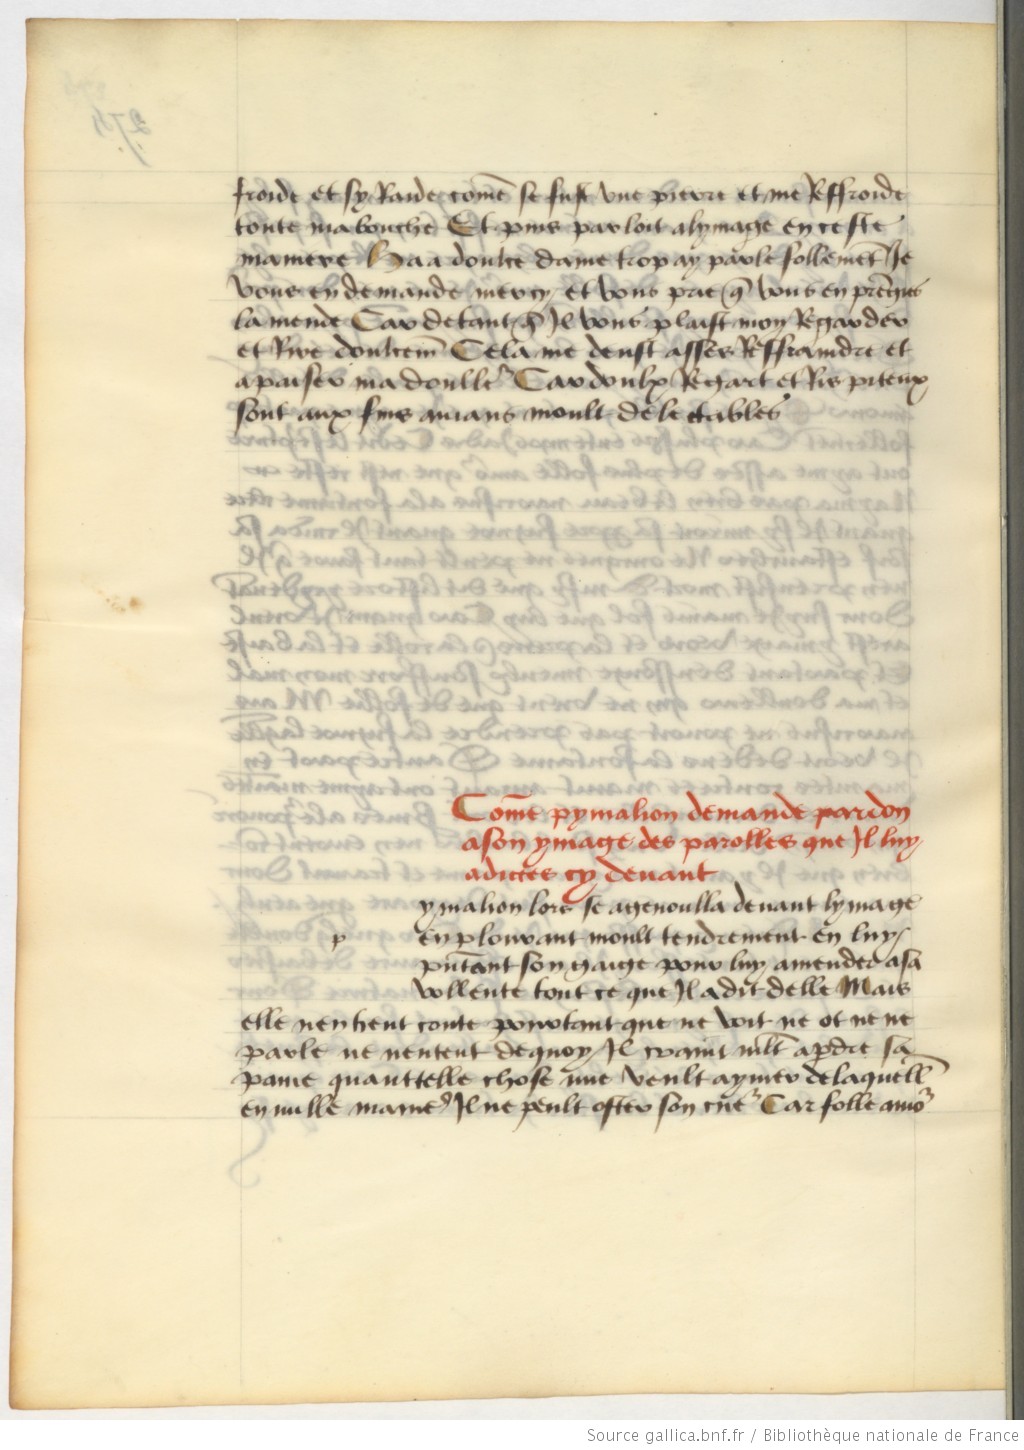 froide et sy Raide come se fust une pierre et me Reffroide
toute ma bouche Et puis parloit a lymage en ceste
maniere Haa doulce dame trop ay parle follemet Je
vous en demande mercy et vous prie q vous en prengnes
lamende Car de tant q Il vous plaist moy Regarder
et Rire doulcem Cela me deust asses Reffraindre et
apaiser ma doulle Car doulx Regart et Ris piteux
sont aux fins amans moult delectables
Come pymalion demande pardon
a son ymage des parolles que Il luy
a dictes cy devant
p
ymalion lors se agenoulla devant lymage
en plourant moult tendrement En luy
pntant son gaige pour luy amender a sa
vollente tout ce que Il a dit delle Mais
elle nen tient conte pourtant que ne voit ne ot ne ne
parle ne nentent de quoy Il craint mlt a pdre sa
paine quant telle chose une veult aymer de laquelle
en nulle manie Il ne peult oster son cue Car folle amo
Source gallica.bnf.fr / Bibliothèque nationale de France